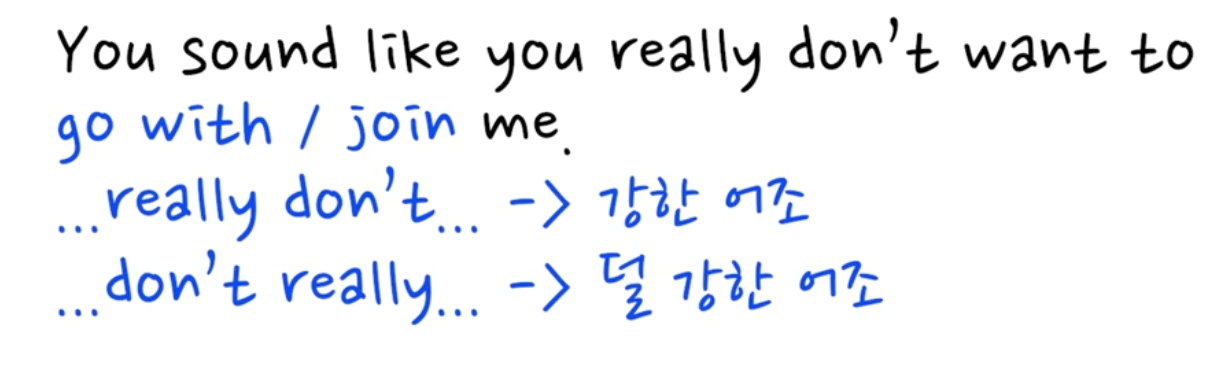 You sound like you really don't want to
go with / join me.
...really don't... -> 강한 어조
...don't really... -> 덜 강한 어조